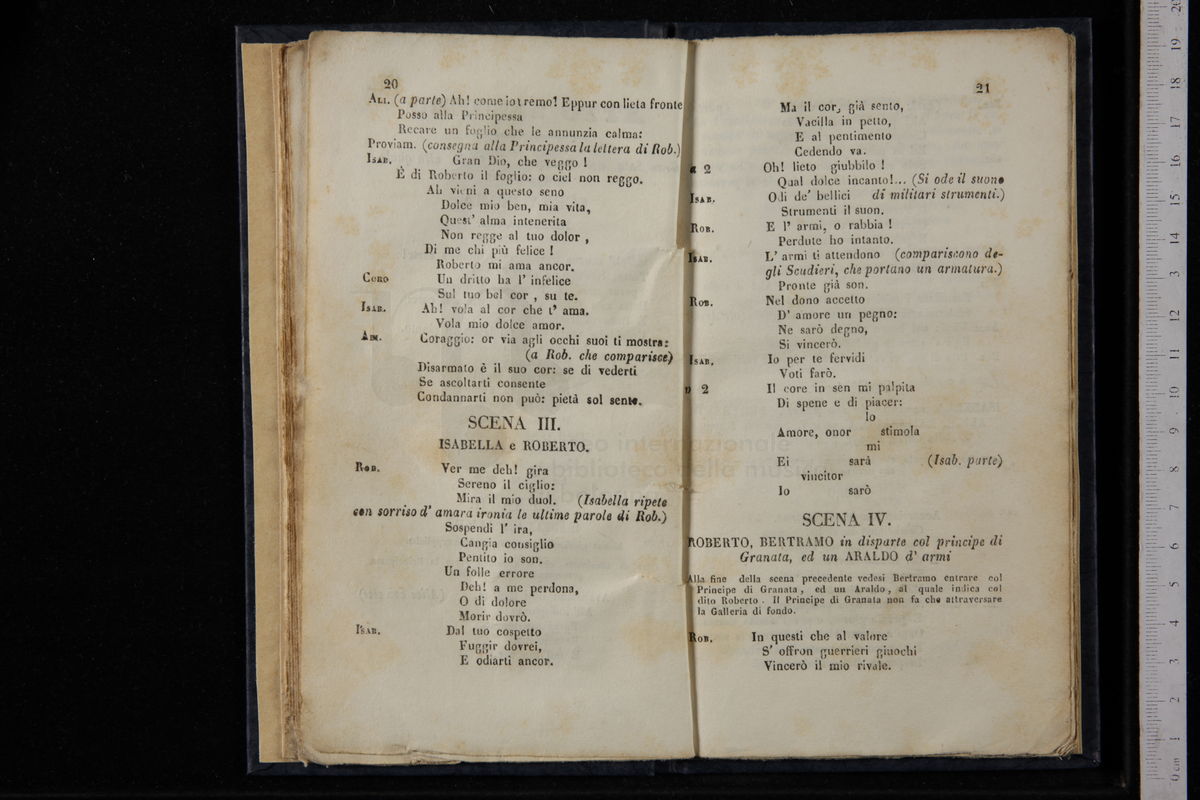 20
ALI. (a parte) Ah! come io tremo! Eppur con lieta fronte
Posso alla Principessa
Recare un foglio che le annunzia calma:
Proviam. (consegna alla Principessa la lettera di Rob.)
ISAB. Gran Dio, che veggo !
È di Roberto il foglio: o ciel non reggo.
Ah vieni a questo seno
Dolce mio ben, mia vita,
Quest' alma intenerita
Non regge al tuo dolor ,
Di me chi più felice !
Roberto mi ama ancor.
CORO Un dritto ha l' infelice
Sul tuo bel cor , su te.
ISAB. Ah! vola al cor che t' ama.
Vola mio dolce amor.
Coraggio: or via agli occhi suoi ti mostra:
(a Rob. che comparisce)
Disarmato è il suo cor: se di vederti
Se ascoltarti consente
Condannarti non può: pietà sol sente.
SCENA III.
ISABELLA e ROBERTO.
ROB. Ver me deh! gira
Sereno il ciglio:
Mira il mio duol. (Isabella ripete
con sorriso d' amara ironia le ultime parole di Rob.)
Sospendi l' ira,
Cangia consiglio
Pentito io son.
Un folle errore
Deh! a me perdona,
O di dolore
Morir dovrò.
ISAB. Dal tuo cospetto
Fuggir dovrei,
E odiarti ancor.
21
Ma il cor, già sento,
Vacilla in petto,
E al pentimento
Cedendo va.
a 2 Oh! lieto giubbilo !
Qual dolce incanto!... (Si ode il suono
ISAB. Odi de' bellici di militari strumenti.)
Strumenti il suon.
ROB. E l' armi, o rabbia !
Perdute ho intanto.
ISAB. L' armi ti attendono (compariscono de-
gli Scudieri, che portano un armatura.)
Pronte già son.
ROB. Nel dono accetto
D' amore un pegno:
Ne sarò degno,
Si vincerò.
ISAB. Io per te fervidi
Voti farò.
a 2 Il core in sen mi palpita
Di spene e di piacer:
lo
Amore, onor stimola
mi
Ei sarà (Isab. parte)
vincitor
Io sarò
SCENA IV.
ROBERTO, BERTRAMO in disparte col principe di
Granata, ed un ARALDO d' armi
Alla fine della scena precedente vedesi Bertramo entrare col
Principe di Granata , ed un Araldo , al quale indica col
dito Roberto . Il Principe di Granata non fa che attraversare
la Galleria di fondo.
ROB. In questi che al valore
S' offron guerrieri giuochi
Vincerò il mio rivale.